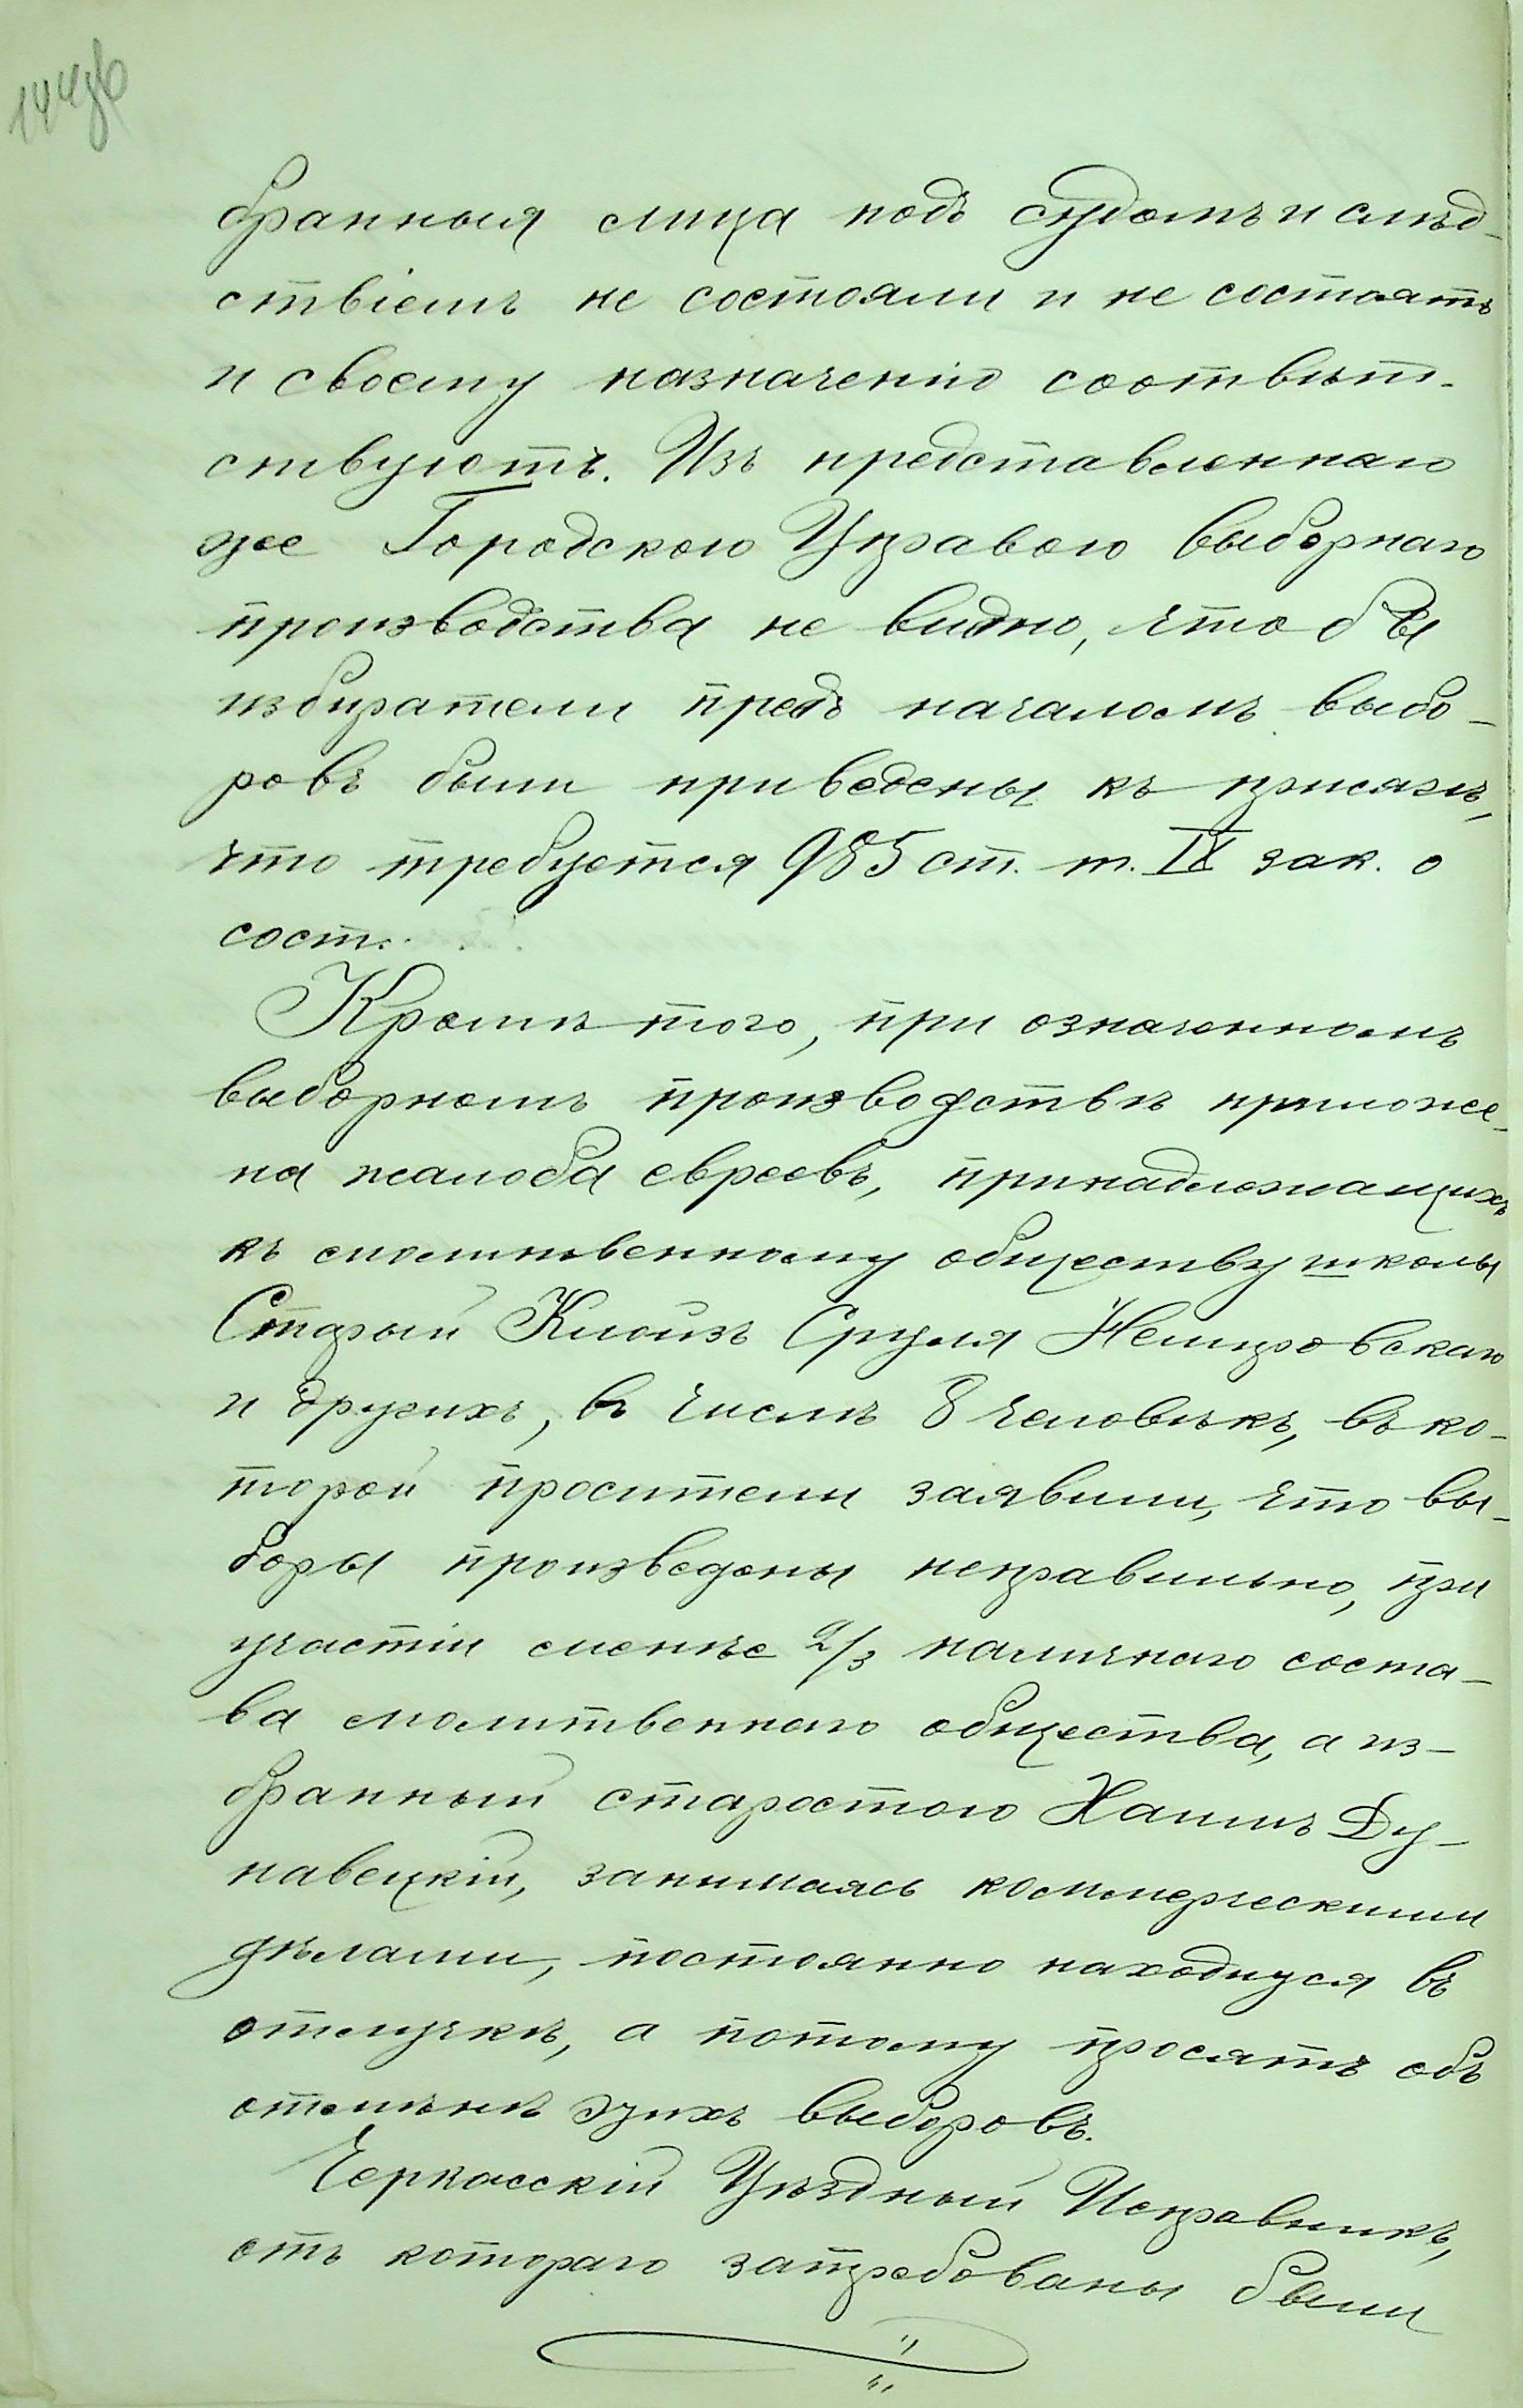 144об
бранныя лица подъ судомъ и слѣд-
ствіемъ не состояли и не состоятъ
и своему назначенію соотвѣт-
ствуютъ. Изъ представленнаго
же Городскою Управою выборнаго
производства не видно, чтобы
избиратели предъ началомъ выбо-
ровъ были приведены къ присягѣ,
что требуется 985 ст. т. IX зак. о
сост.
Кромѣ того, при означенномъ
выборномъ производствѣ приложе-
на жалоба евреевъ, принадлежащихъ
къ молитвенному обществу школы
Старый Клойзъ Сруля Немировскаго
и другихъ, въ числѣ 8 человѣкъ, въ ко-
торой просители заявили, что вы-
боры произведены неправильно, при
участіи менѣе 2/3 наличнаго соста-
ва молитвеннаго общества, а из-
бранный старостою Хаимъ Ду-
навецкій, занимаясь коммерческими
дѣлами, постоянно находится въ
отлучкѣ, а потому просятъ объ
отмѣнѣ этихъ выборовъ.
Черкасскій Уѣздный Исправникъ,
отъ котораго затребованы были